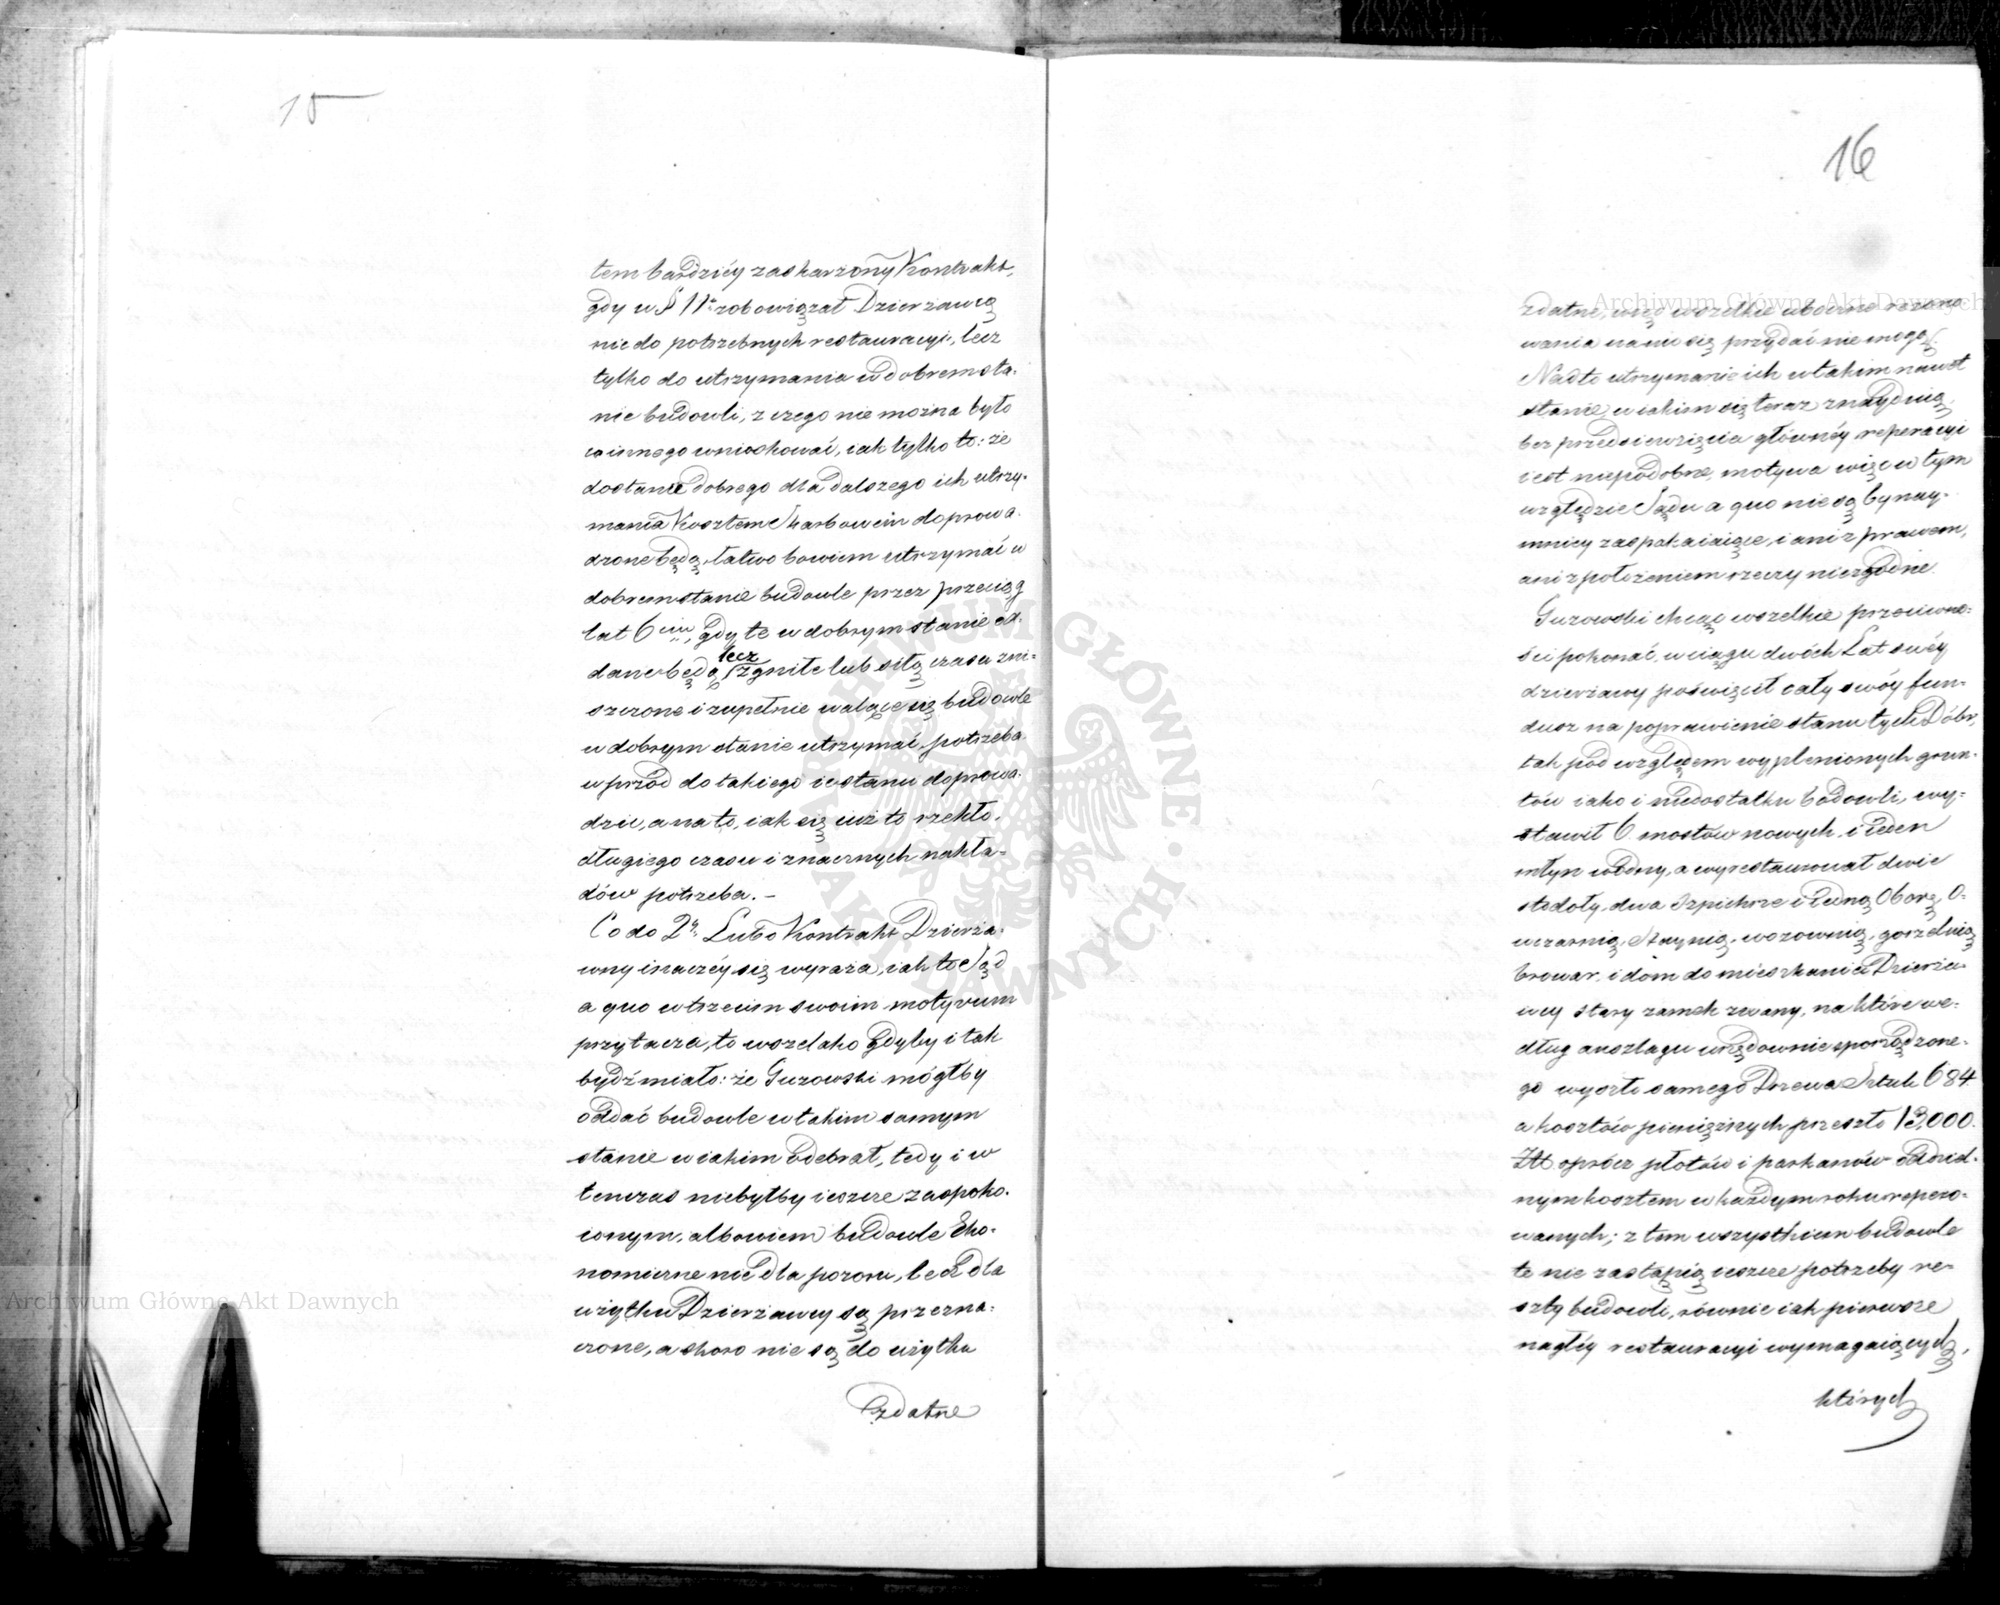 15
tem bardziéy zaskarżony Kontrakt,
gdy w § 11. zobowiązał Dzierżawcę
nie do potrzebnych restauracyi, lecz
tylko do utrzymania w dobrem sta-
nie budowli, z czego nie można było
co innego wnioskować, iak tylko to: że
do stanu dobrego dla dalszego ich utrzy-
mania Kosztem Skarbowém doprowa-
dzone będą, łatwo bowiem utrzymać w
dobrem stanie budowle przez przeciąg
lat 6ciu, gdy te w dobrym stanie od-
dane będą, lecz zgniłe lub siłą czasu zni-
szczone i zupełnie walące się budowle
w dobrym stanie utrzymać, potrzeba
wprzód do takiego ie stanu doprowa-
dzić, a na to, iak się iuż to rzekło,
długiego czasu i znacznych nakła-
dów potrzeba. –
Co do 2. Lubo Kontrakt Dzierża-
wny inaczéy się wyraża, iak to Sąd
a quo w trzecim swoim motyvum
przytacza, to wszelako gdyby i tak
bydź miało: że Gurowski mógłby
oddać budowle w takim samym
stanie w iakim odebrał, tedy i w
tenczas niebyłby ieszcze zaspoko-
ionym, albowiem budowle Eko-
nomiczne nie dla pozoru, lecz dla
użytku Dzierżawcy są przezna-
czone, a skoro nie są do użytku
zdatne
16
zdatne, więc wszelkie uboczne rezono-
wania na nic się przydać nie mogą.
Nadto utrzymanie ich w takim nawet
stanie w iakim się teraz znayduią,
bez przedsięwzięcia głównéy reperacyi
iest niepodobne, motywa więc w tym
względzie Sądu a quo nie są bynay-
mniey zaspakaiaiące, i ani z prawem,
ani z położeniem rzeczy niezgodne.
Gurowski chcąc wszelkie przeciwno-
ści pokonać, w ciągu dwóch Lat swéy
dzierżawy poświęcił cały swóy fun-
dusz na poprawienie stanu tych Dóbr,
tak pod względem wyplenionych grun-
tów iako i niedostatku budowli, wy-
stawił 6 mostów nowych, i ieden
młyn wodny, a wyrestaurował dwie
stodoły, dwa Szpichrze i iedną Oborę, O-
wczarnią, Staynię, wozownią, gorzelnią
browar, i dom do mieszkania Dzierża-
wcy stary zamek zwany, na które we-
dług anszlagu urzędownie sporządzone-
go wyszło samego Drzewa Sztuk 684
a kosztów pieniężnych przeszło 13,000.
Zł. oprócz płotów i parkanów oddziel-
nym kosztem w każdym roku repero-
wanych; z tem wszystkiem budowle
te nie zastąpią ieszcze potrzeby re-
szty budowli, równie iak pierwsze
nagłéy restauracyi wymagaiących,
których
Archiwum Główne Akt Dawnych
Archiwum Główne Akt Dawnych
ARCHIWUM GŁÓWNE AKT DAWNYCH